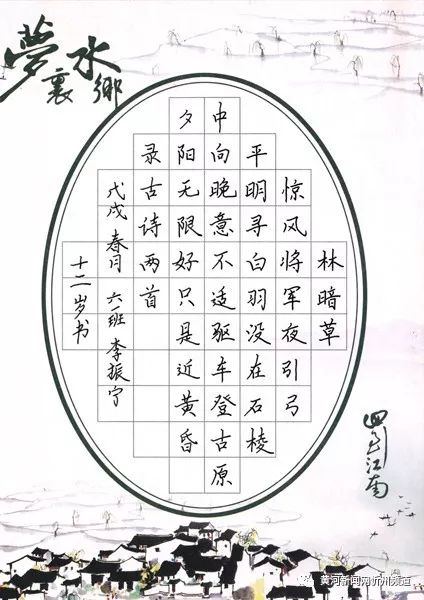 夢裏水鄉
林暗草
惊风将军夜引弓
平明寻白羽没在石棱
中向晚意不适驱车登古原
夕阳无限好只是近黄昏
录古诗两首
戊戌 春月 六一班 李振宁
十二岁书
江南
黄河新闻网忻州频道